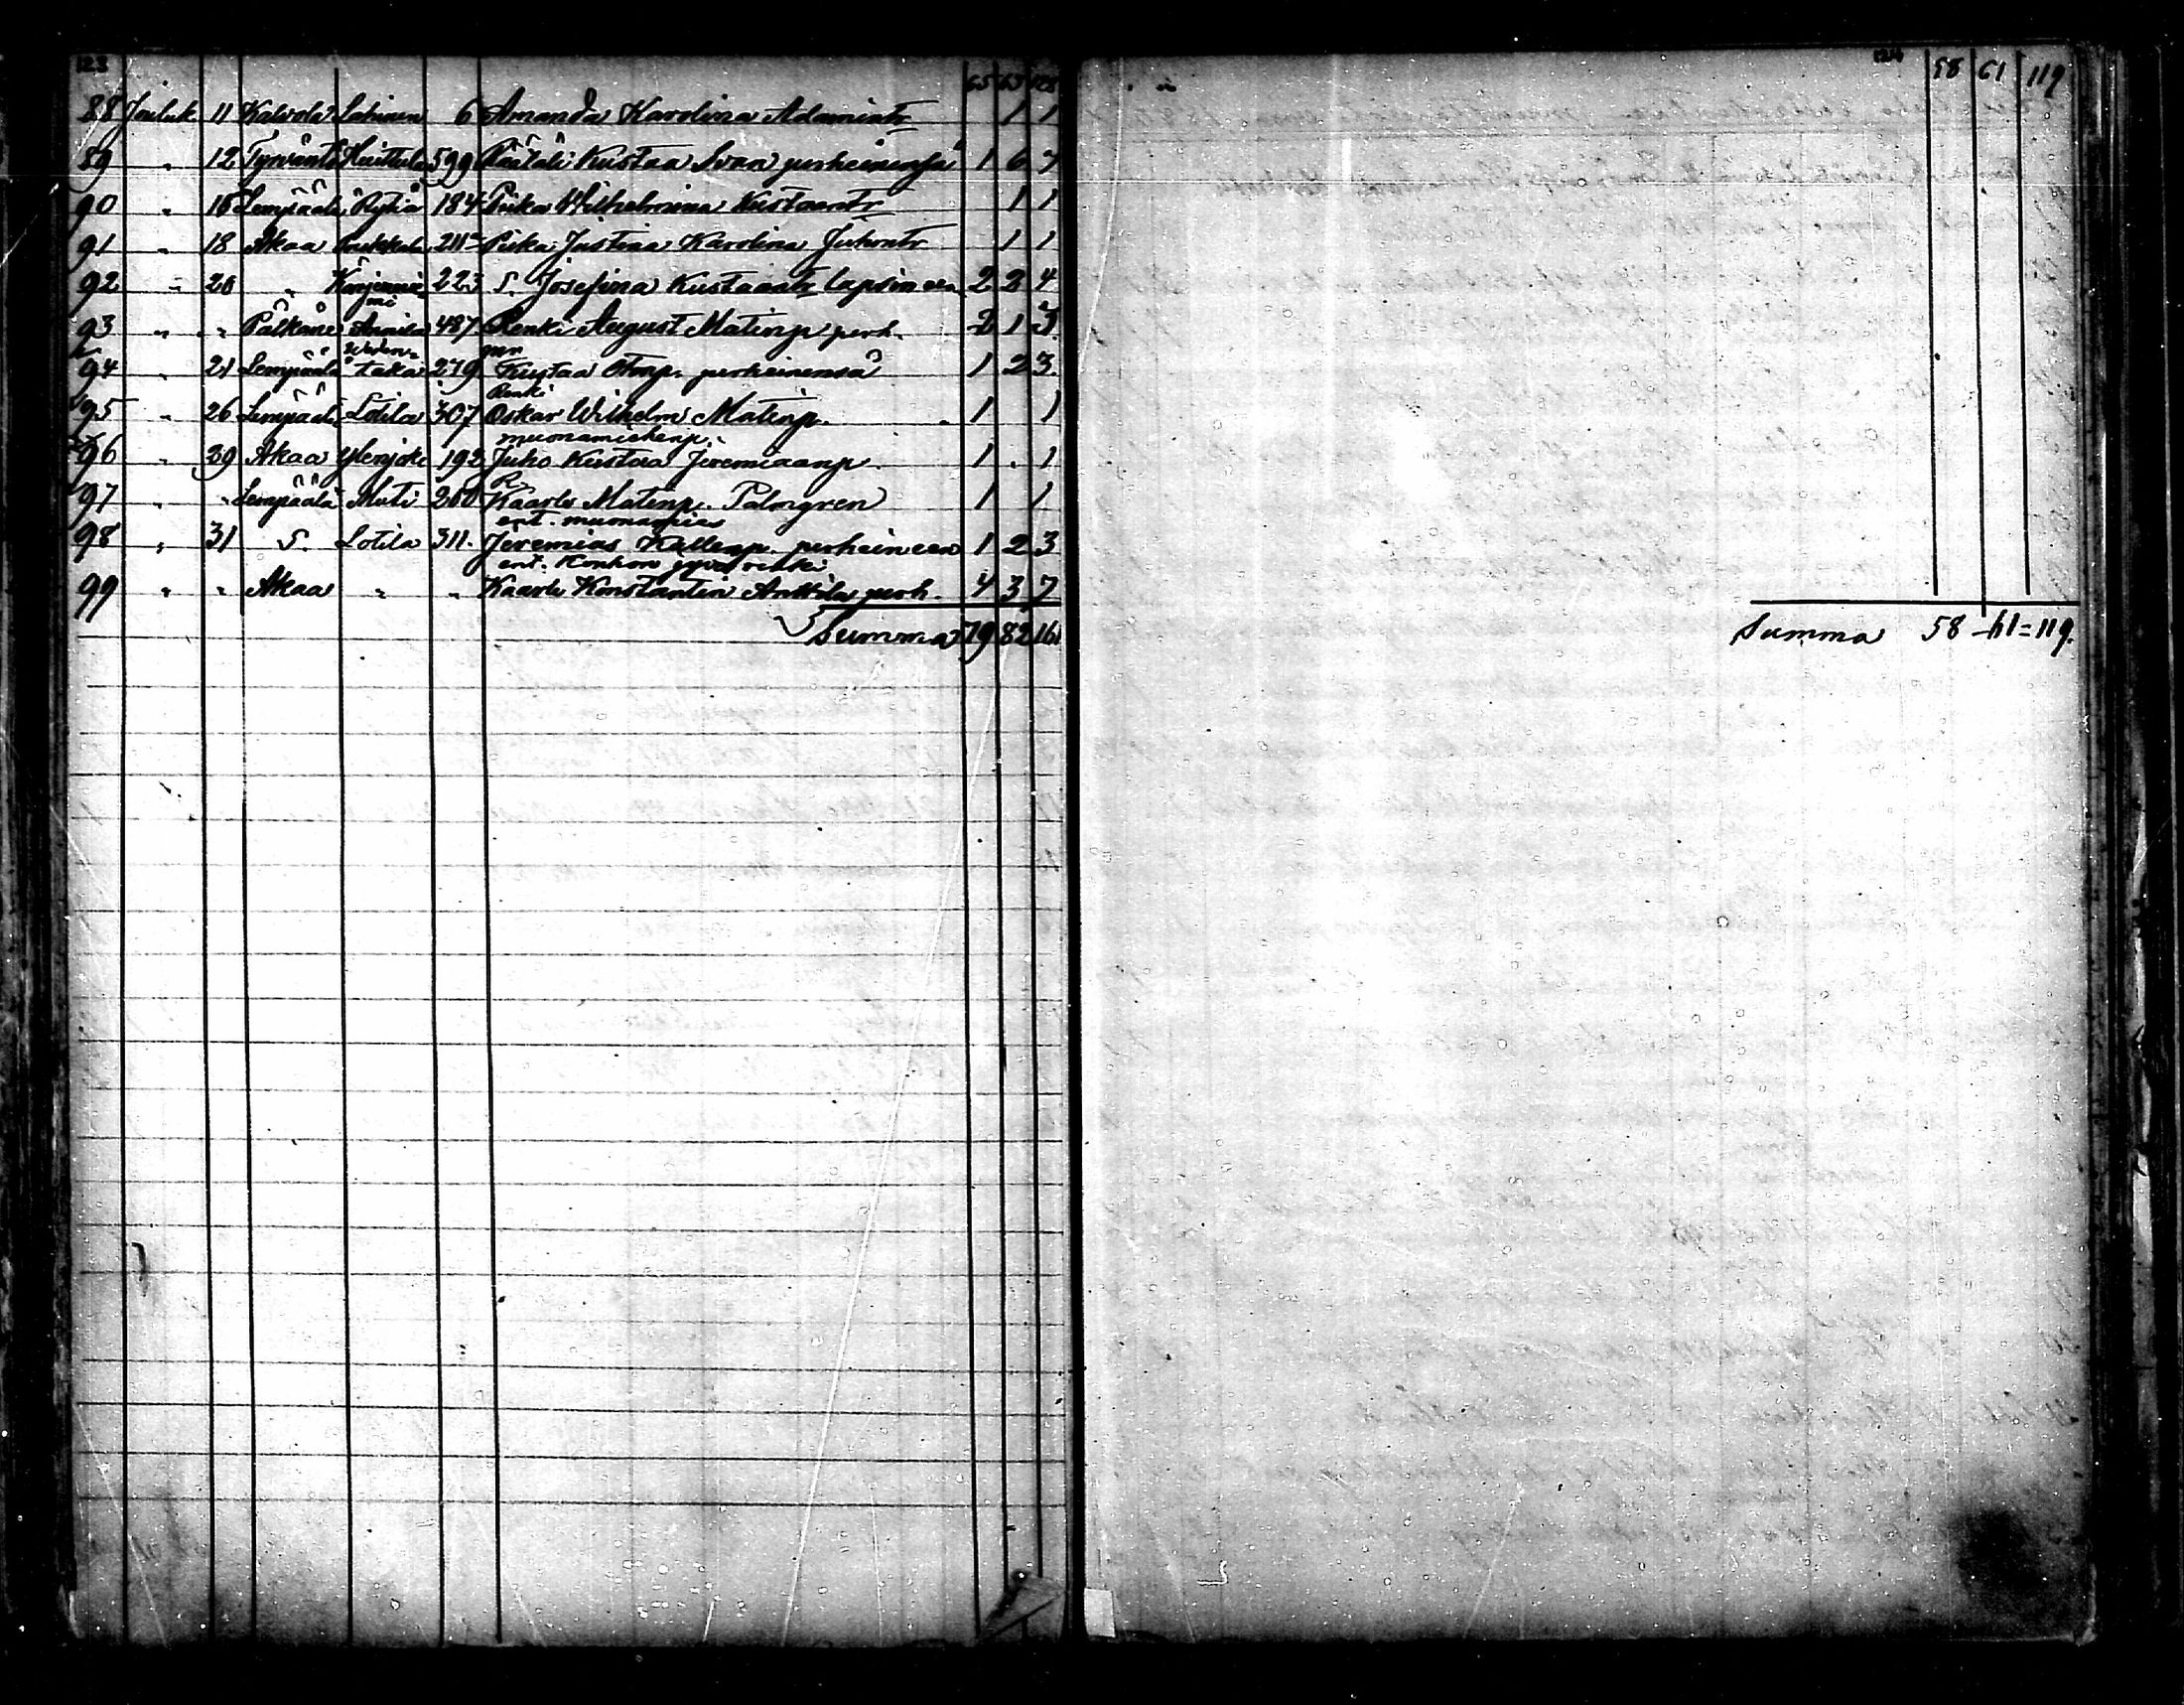 123
65 63 128
88 Jouluk 11 Kalvola Lahinen 6 Amanda Karolina Adamintr 1 1
89 " 12 Tyrväntö Huittula 599 Räätäli Kustaa Ivan perheinensä 1 6 7
90 " 16 Lempäälä 184 Piika Wilhelmina Kustaantr 1 1
91 " 18 Akaa 211 Piika Justina Karolina Juhontr 1 1
92 " 20 " Kurjenniemi 223 S. Josefina Kustaantr lapsineen 2 2 4
93 " " Pälkäne Annila 487 Renki August Matinp perh. 2 1 3
94 " 21 Lempäälä taka 279 Kustaa Ottop. perheinensä 1 2 3.
Renki
95 " 26 Lempäälä Lotila 307 Oskar Wilhelm Matinp. 1 1
muonamiehenp.
96 " 29 Akaa Ylenjoki 192 Juho Kustaa Jeremiaanp. 1 . 1
R.
97 " " Lempäälä Muti 200 Kaarlo Matinp. Palmgren 1 1
ent. muonamies
98 " 31 S. Lotila 311. Jeremias Kallenp. perheineen 1 2 3
ent. renki
99 " " Akaa " " Kaarle Konstantin Anttila perh. 4 3 7
Summa 79 82 161
124
58 61 119
Summa 58 - 61 = 119.